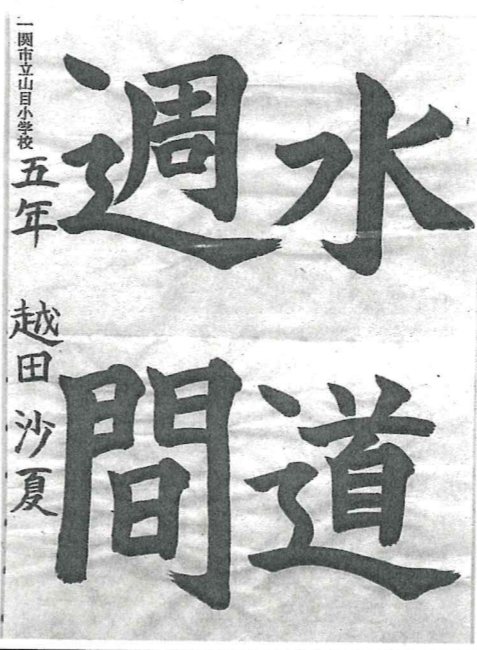 水道
週間
一関市立山目小学校 五年 越田沙夏